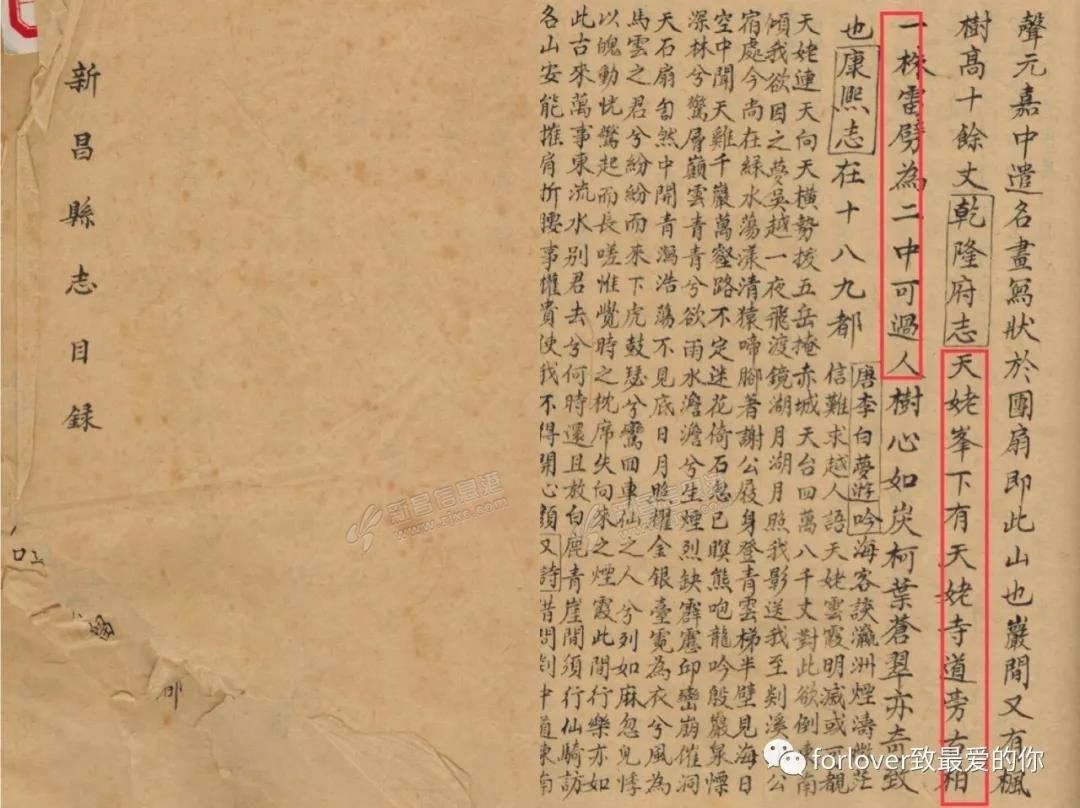 聲元嘉中遣名畫寫狀於團扇即此山也巖間又有楓
樹高十餘丈乾隆府志天姥峯下有天姥寺道旁古柏
一株雷劈為二中可過人樹心如炭柯葉蒼翠亦奇致
也康熙志在十八九都
唐李白夢遊吟海客談瀛洲煙濤微茫
信難求越人語天姥雲霞明滅或可覩
天姥連天向天橫勢拔五岳掩赤城天台四萬八千丈對此欲倒東南
傾我欲因之夢吳越一夜飛渡鏡湖月湖月照我影送我至剡溪公
宿處今尚在綠水蕩漾清猿啼腳著謝公屐身登青雲梯半壁見海日
空中聞天雞千巖萬壑路不定迷花倚石忽已暝熊咆龍吟殷巖泉慄
深林兮驚層巔雲青青兮欲雨水澹澹兮生煙烈缺霹靂邱巒崩催洞
天石扇訇然中開青濶浩蕩不見底日月照耀金銀臺霓為衣兮風為
馬雲之君兮紛紛而來下虎鼓瑟兮鸞回車仙之人兮列如麻忽兒悸
以魄動恍驚起而長嗟惟覺時之枕席失向來之煙霞此間行樂亦如
此古來萬事東流水別君去兮何時還且放白鹿青崖間須行仙騎訪
名山安能摧肩折腰事權貴使我不得開心顏又詩借問剡中道東南
新昌縣志目錄
新昌信息港
www.zjxc.com
forlover致最爱的你